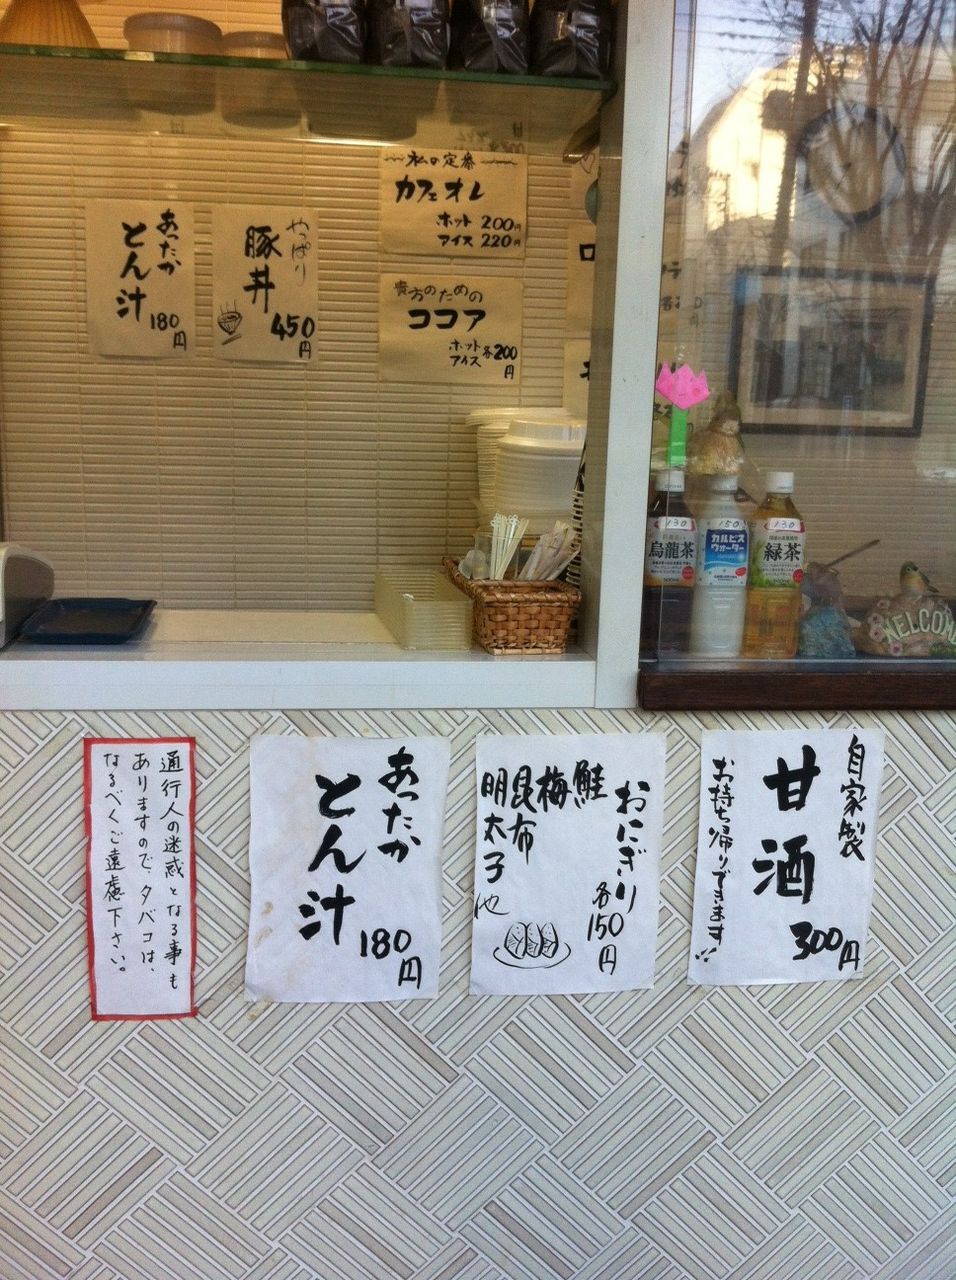 あったか
とん汁
180円
やっぱり
豚丼
450円
私の定番
カフェオレ
ホット 200円
アイス 220円
貴方のための
ココア
ホット
アイス 各200円
130
烏龍茶
150
カルピス
ウォーター
130
緑茶
WELCOME
通行人の迷惑となる事も
ありますので、タバコは、
なるべくご遠慮下さい。
あったか
とん汁
180円
おにぎり
各150円
鮭
梅
昆布
明太子
他
自家製
甘酒
300円
お持ち帰りできます!!